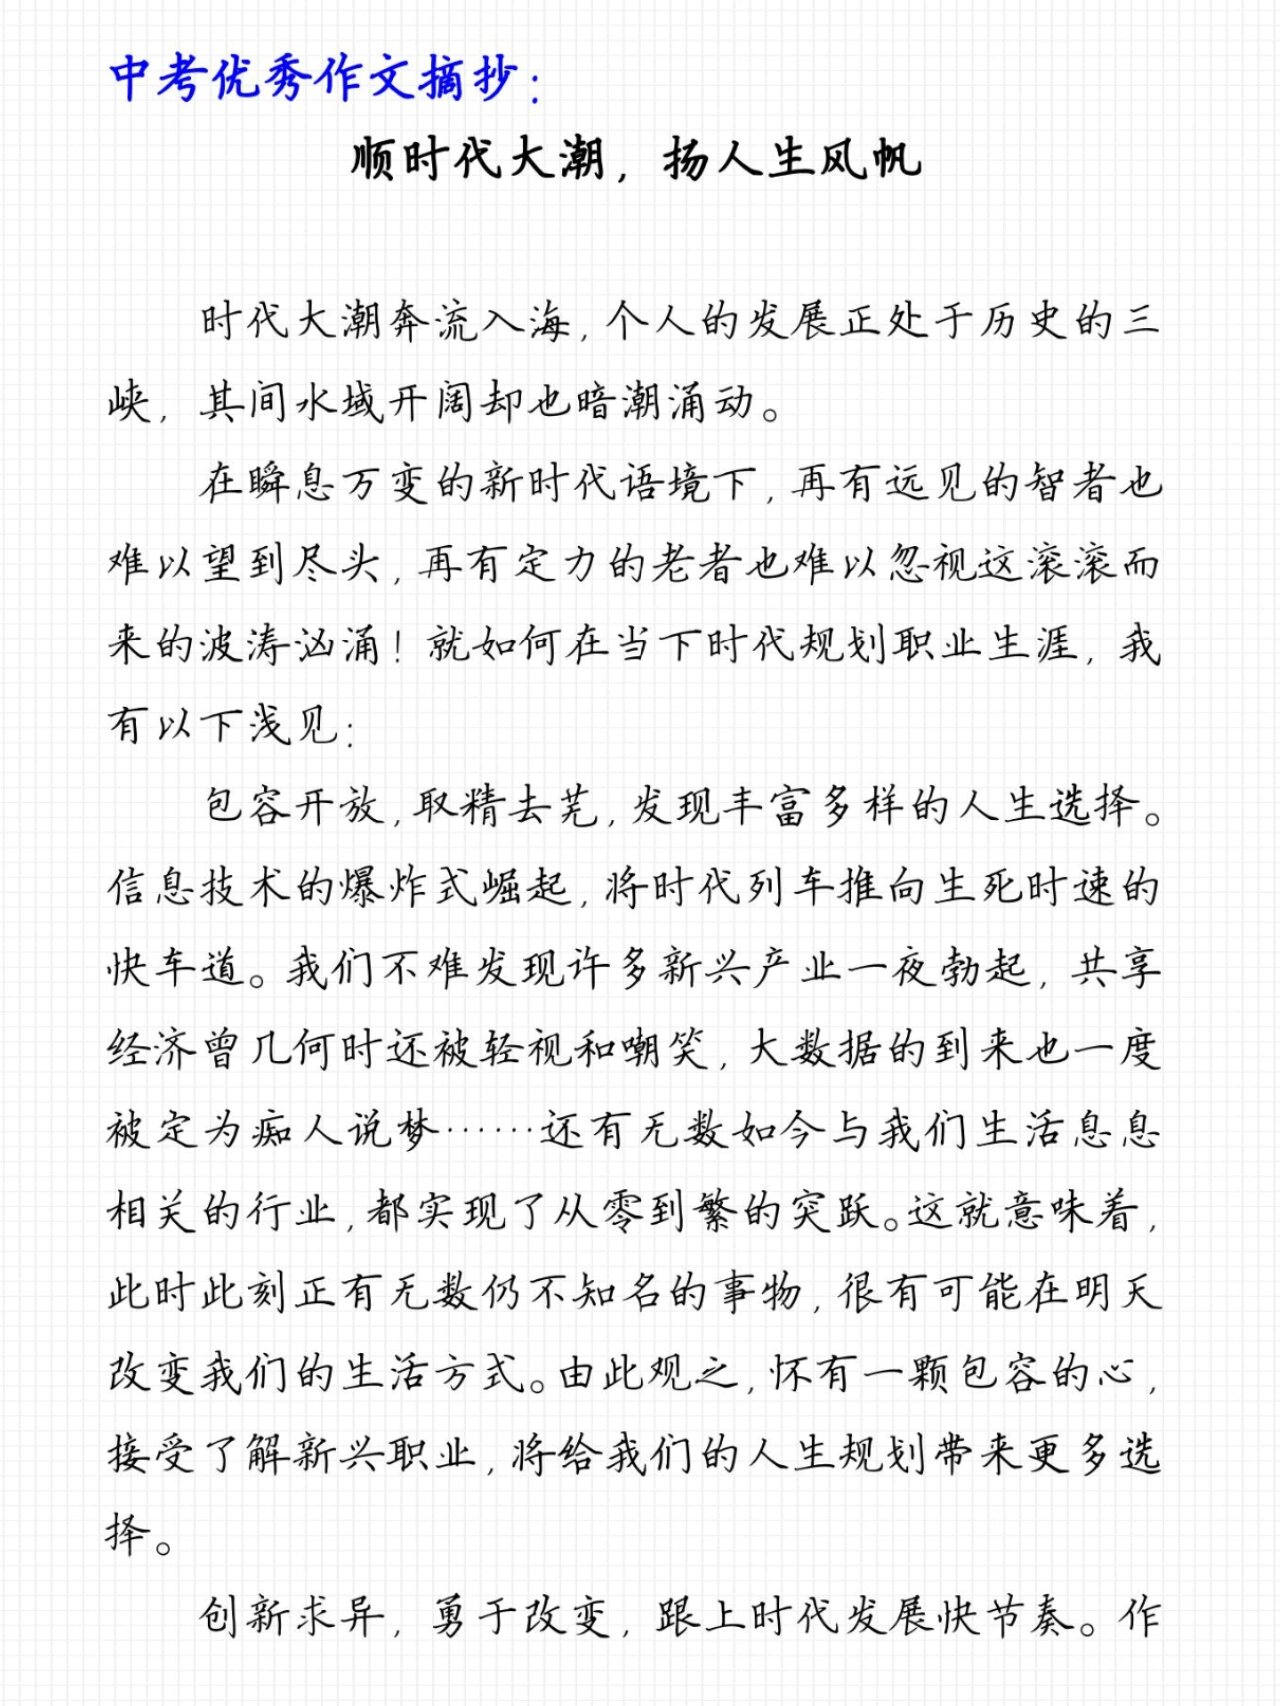 中考优秀作文摘抄：
顺时代大潮，扬人生风帆
时代大潮奔流入海，个人的发展正处于历史的三
峡，其间水域开阔却也暗潮涌动。
在瞬息万变的新时代语境下，再有远见的智者也
难以望到尽头，再有定力的老者也难以忽视这滚滚而
来的波涛汹涌！就如何在当下时代规划职业生涯，我
有以下浅见：
包容开放，取精去芜，发现丰富多样的人生选择。
信息技术的爆炸式崛起，将时代列车推向生死时速的
快车道。我们不难发现许多新兴产业一夜勃起，共享
经济曾几何时还被轻视和嘲笑，大数据的到来也一度
被定为痴人说梦……还有无数如今与我们生活息息
相关的行业，都实现了从零到繁的突跃。这就意味着，
此时此刻正有无数仍不知名的事物，很有可能在明天
改变我们的生活方式。由此观之，怀有一颗包容的心，
接受了解新兴职业，将给我们的人生规划带来更多选
择。
创新求异，勇于改变，跟上时代发展快节奏。作